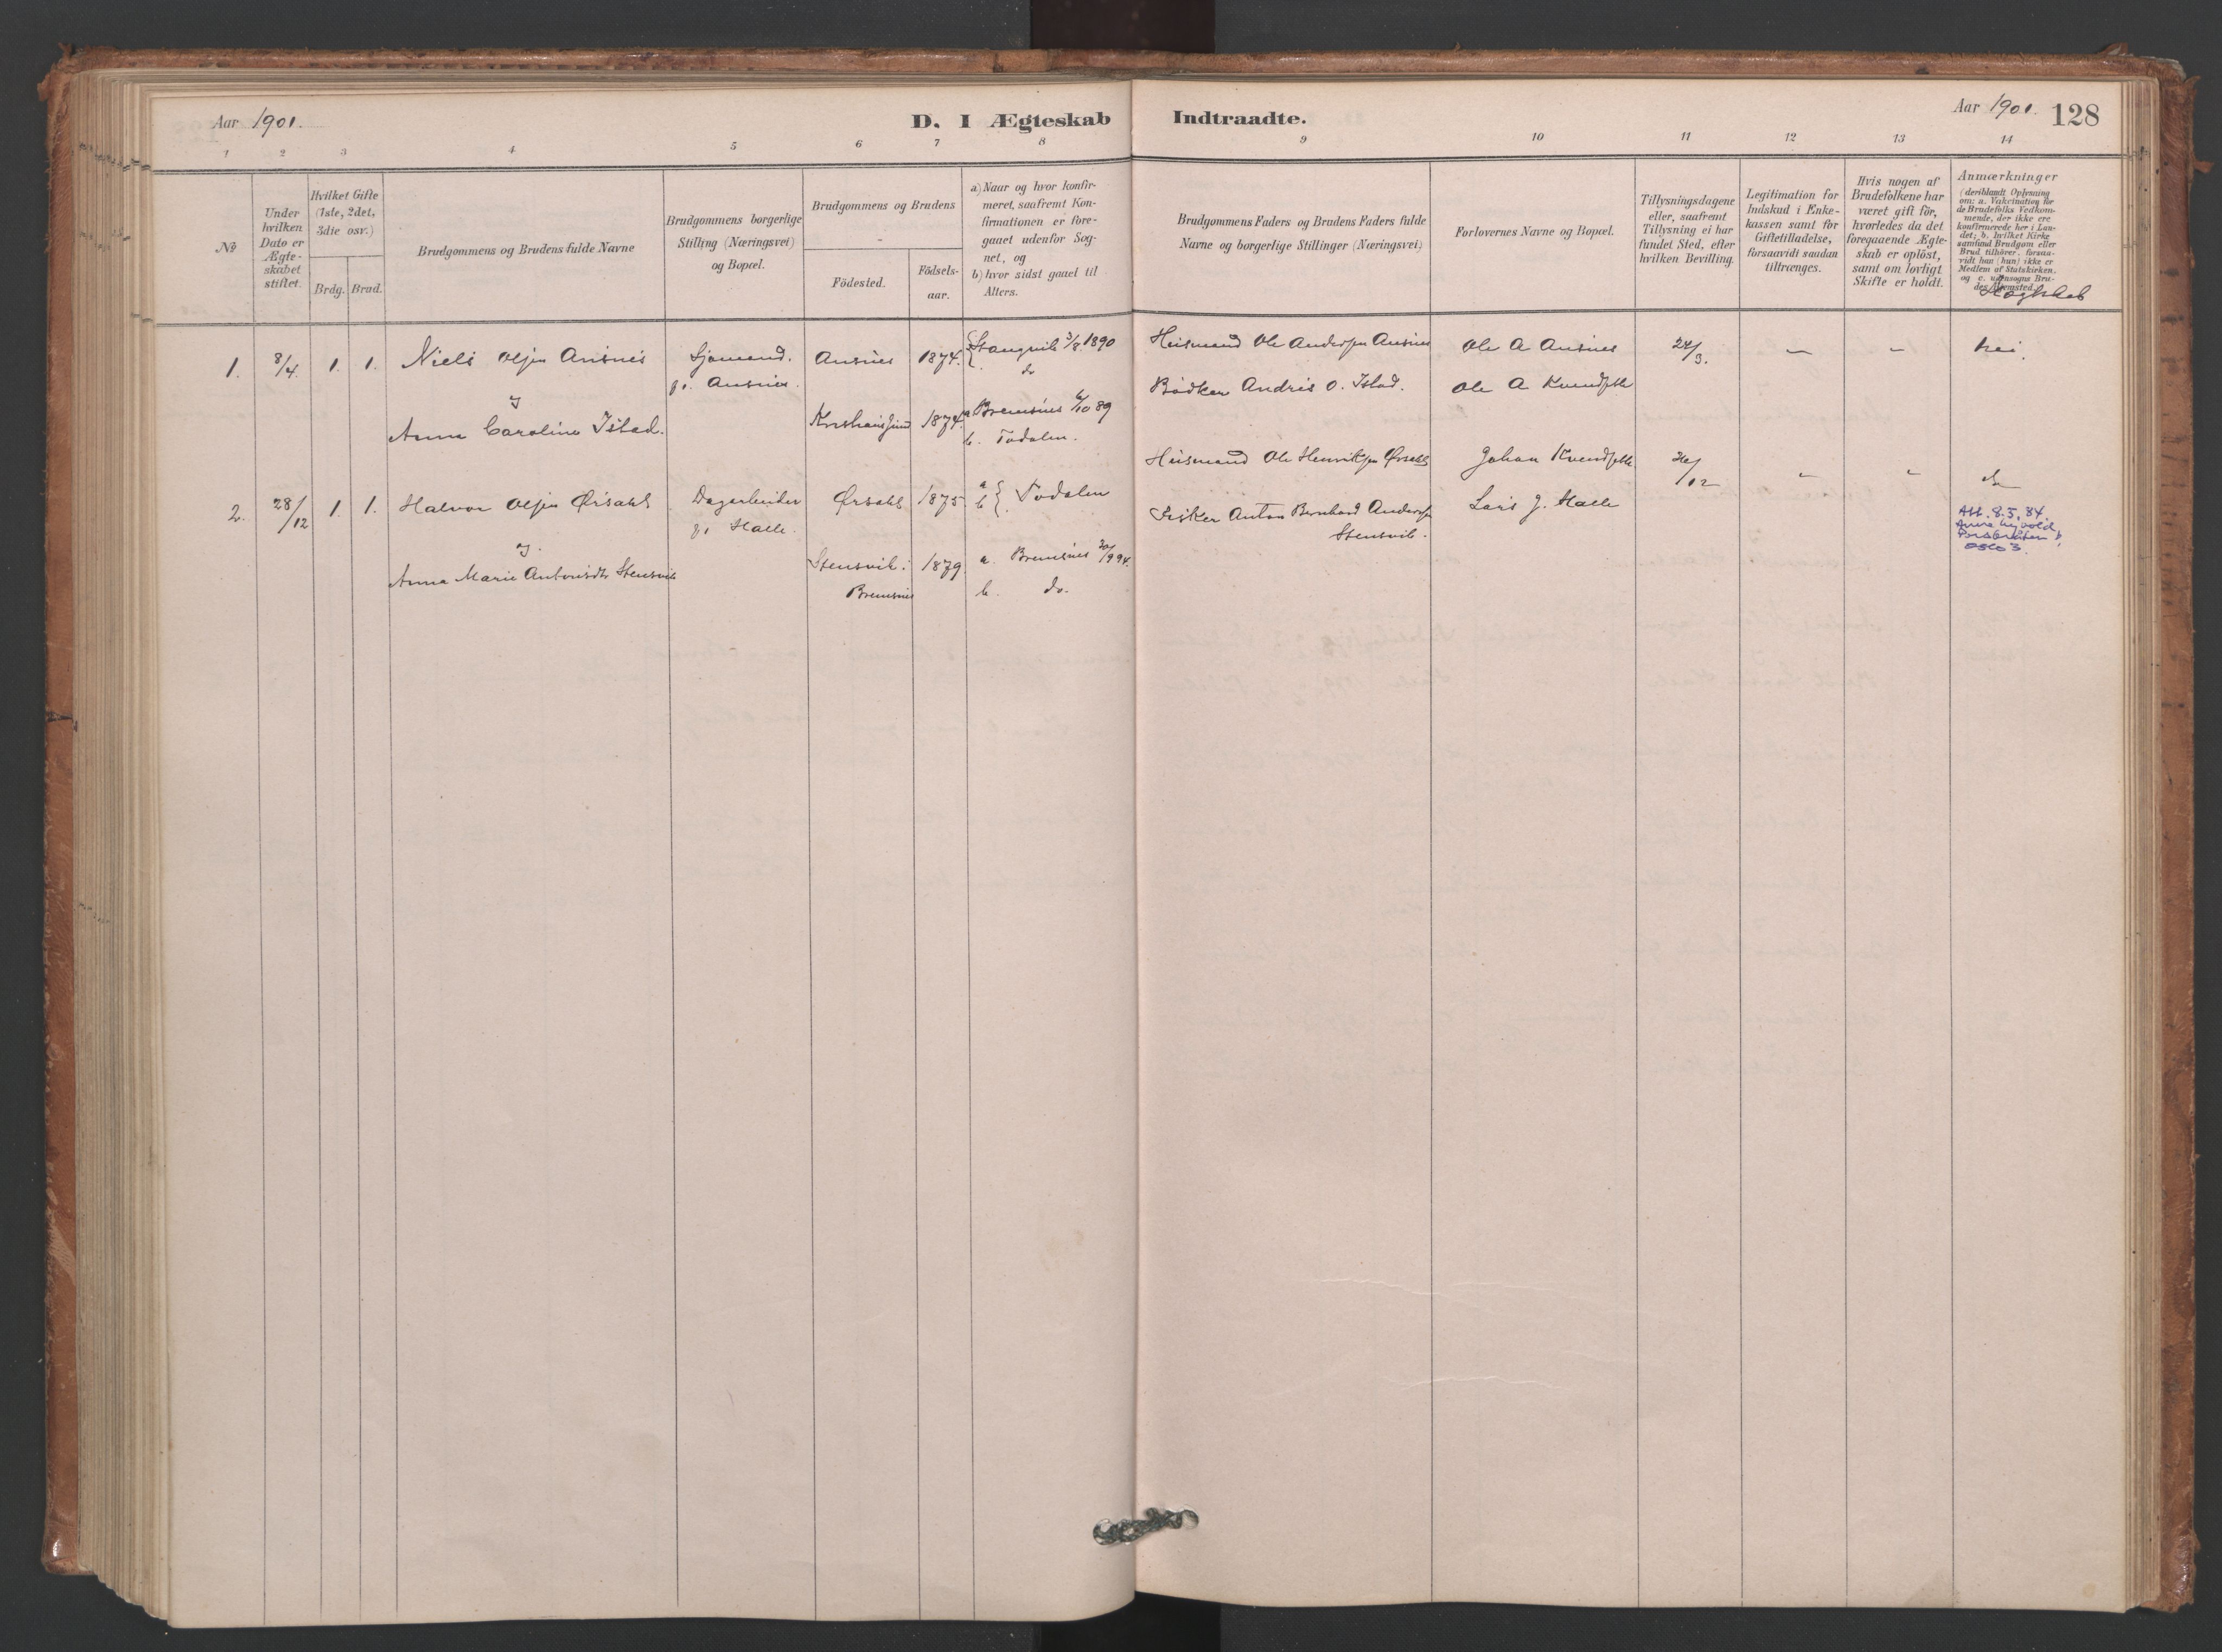 Aar 1901.
D. I Ægteskab Indtraadte.
Aar 1901. 128
1 2 3 4 5 6 7 8 9 10 11 12 13 14
No
Under hvilken Dato er Ægteskabet stiftet.
Hvilket Gifte (1ste, 2det, 3die osv.)
Brdg. Brud.
Brudgommens og Brudens fulde Navne
Brudgommens borgerlige Stilling (Næringsvei) og Bopæl.
Brudgommens og Brudens
Födested.
Födsels-aar.
a) Naar og hvor konfir-
meret, saafremt Kon-
firmationen er fore-
gaaet udenfor Sog-
net, og
b) hvor sidst gaaet til
Alters.
Brudgommens Faders og Brudens Faders fulde
Navne og borgerlige Stillinger (Næringsvei)
Forlovernes Navne og Bopæl.
Tillysningsdagene
eller, saafremt
Tillysning ei har
fundet Sted, efter
hvilken Bevilling.
Legitimation for
Indskud i Enke-
kassen samt for
Giftetilladelse,
forsaavidt saadan
tiltrænges.
Hvis nogen af
Brudefolkene har
været gift för,
hvorledes da det
foregaaende Ægte-
skab er oplöst,
samt om lovligt
Skifte er holdt.
Anmærkninger
(deriblandt Oplysning
om: a. Vakcination for
de Brudefolks Vedkom-
mende, der ikke ere
konfirmerede her i Lan-
det; b. hvilket Kirke-
samfund Brudgom eller
Brud tilhörer, forsaa-
vidt han (hun) ikke er
Medlem af Statskirken,
og c. udensogns Bru-
des Hjemsted.)
Slægtskab
1. 8/4. 1. 1. Niels Olsen Ansnes
Sjømand.
p. Ansnes.
Ansnes 1874. Stangvik 3/8 1890
do
Husmand Ole Andersen Ansnes
Ole A Ansnes
24/3.
nei.
Bødker Andris O. Istad.
Ole A Kvendset
og
Anna Caroline Istad.
Kristiansund 1874. a Bremsnes 6/10 89
b. Todalen.
2. 28/12 1. 1. Halvor Olsen Ørsahl
Dagarbeider
p. Halle.
Ørsahl 1875. a b } Todalen
Husmand Ole Henriksen Ørsahl
Johan Kvendset
26/12
do
Fisker Anton Bernhard Andersen
Stensvik.
Lars J. Halle
og.
Anna Marie Antonsdtr Stensvik
Stensvik i
Bremsnes
1879. a. Bremsnes 30/9 94.
b. do.
Att. 8.5.84.
Oslo 3.